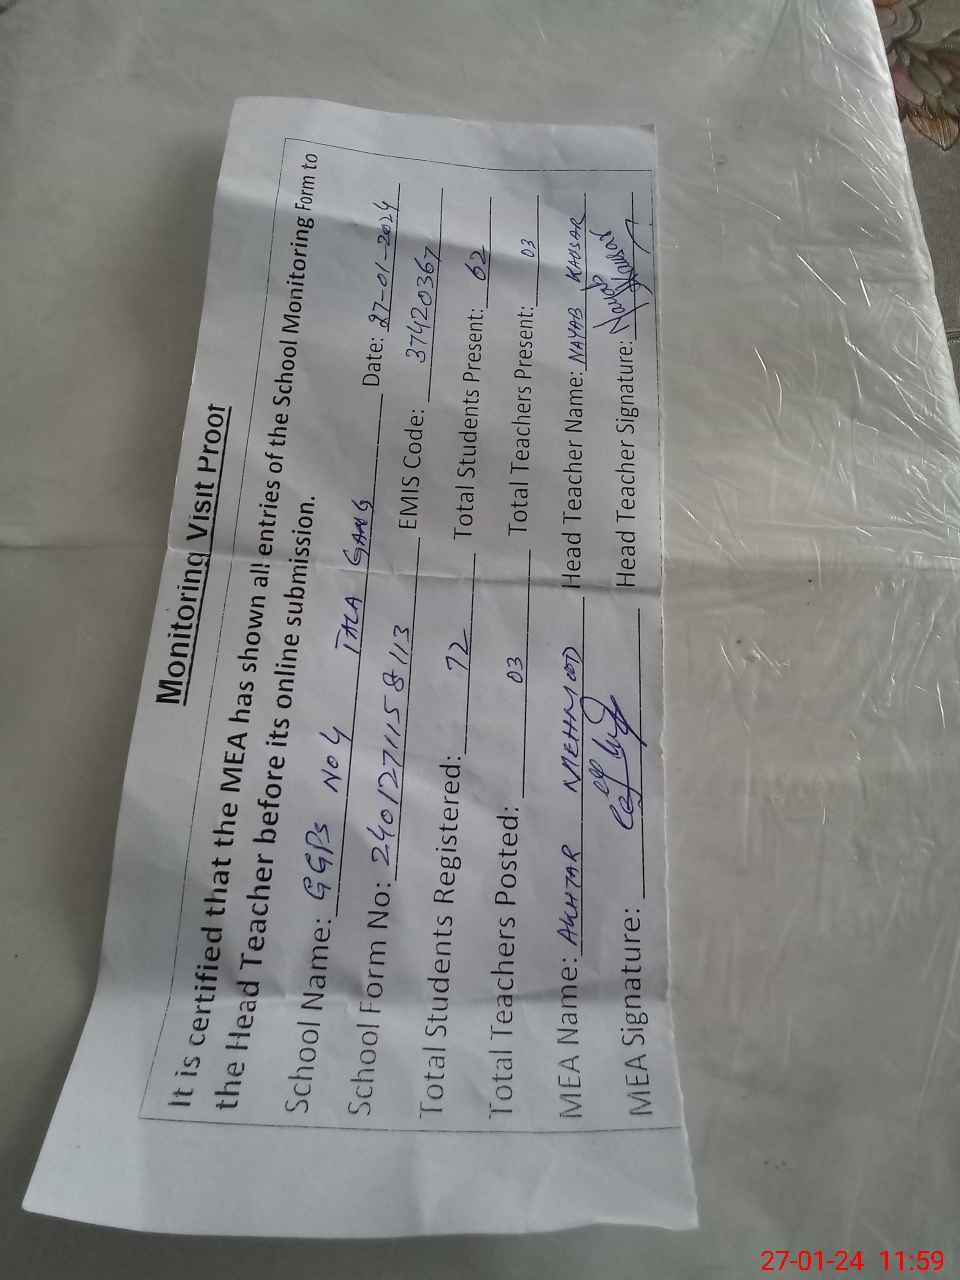 Monitoring Visit Proof
It is certified that the MEA has shown all entries of the School Monitoring Form to
the Head Teacher before its online submission.
School Name: GGPS NO 4 TALA GANG Date: 27-01-2024
School Form No: 2401271158113 EMIS Code: 37420367
Total Students Registered: 72 Total Students Present: 62
Total Teachers Posted: 03 Total Teachers Present: 03
MEA Name: AKHTAR MEHMOOD Head Teacher Name: NAYAB KAUSAR
MEA Signature: Head Teacher Signature: Nayab Kausar
27-01-24 11:59